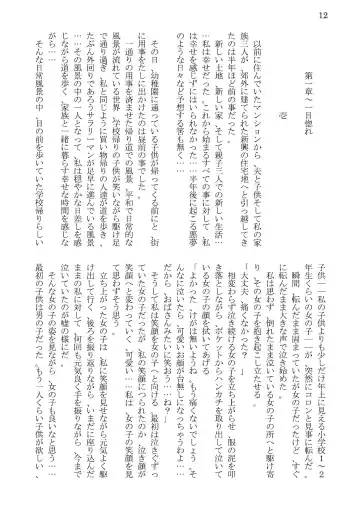 12
第一章～一目惚れ
壱
以前に住んでいたマンションから、夫と子供そして私の家
族三人が、郊外に建てられた新興の住宅地へと引っ越してき
たのは半年ほど前の事だった。
新しい土地、新しい家、そして親子三人での新しい生活…
…私は幸せだった。これから始まるすべての事に対して、私
は幸せを感じずにはいられなかった……半年後に起こる悪夢
のような日々など予想する筈も無く……
その日、幼稚園に通っている子供が帰ってくる前にと、街
に用事をたしに出かけたのは昼前の事でした。
一通りの用事を済ませた帰り道での風景、平和で日常的な
風景が流れている世界、学校帰りの子供が笑いながら駆け足
で通り過ぎ、私と同じように買い物帰りの人達が道を歩き、
たぶん外回りであろうサラリーマンが足早に進んでいる風景
……その風景の中の一人となって、私は穏やかな日差しを感
じながら道を歩く、家族と一緒に暮らす幸せな時間を感じな
がら……
そんな日常風景の中、目の前を歩いていた学校帰りらしい
子供……私の子供よりもすこしだけ年上に見える小学校1～2
年生ぐらいの女の子が、突然にコロンと見事に転んだ。
瞬間、転んだまま固まっていた女の子だったけど、すぐ
に転んだまま大きな声で泣き始めた。
私は思わず、倒れたまま泣いている女の子の所へと駆け寄
り、その女の子を抱き起こし立たせる。
「大丈夫、痛くなかった？」
相変わらず泣き続ける女の子を立ち上がらせ、服の泥を叩
き落としながら、ポケットからハンカチを取り出して泣いて
いる女の子の顔を拭いてあげる
「よかった、けがは無いようね。もう痛くないでしょう。そ
んなに泣いたら、可愛いお顔が台無しになっちゃうわよ……
だから、おばさんみたいに笑おう……ね？」
そう言って私は笑顔を女の子へと向ける、最初は泣きぐずっ
ていた女の子だったが、私の笑顔につられたのか、泣き顔が
笑顔へと変わっていく、可愛い……私は、女の子の笑顔を見
て思わずそう思う。
立ち上がった女の子は、私に笑顔を見せながら元気よく駆
け出して行く、後ろを振り返りながら、いまだに座り込んだ
ままの私に対して、何回も元気良く手を振りながら、今まで
泣いていたのが嘘の様にだ。
そんな女の子の姿を見ながら、女の子も良いなと思う……
最初の子供は男の子だった、もう一人くらい子供が欲しい、